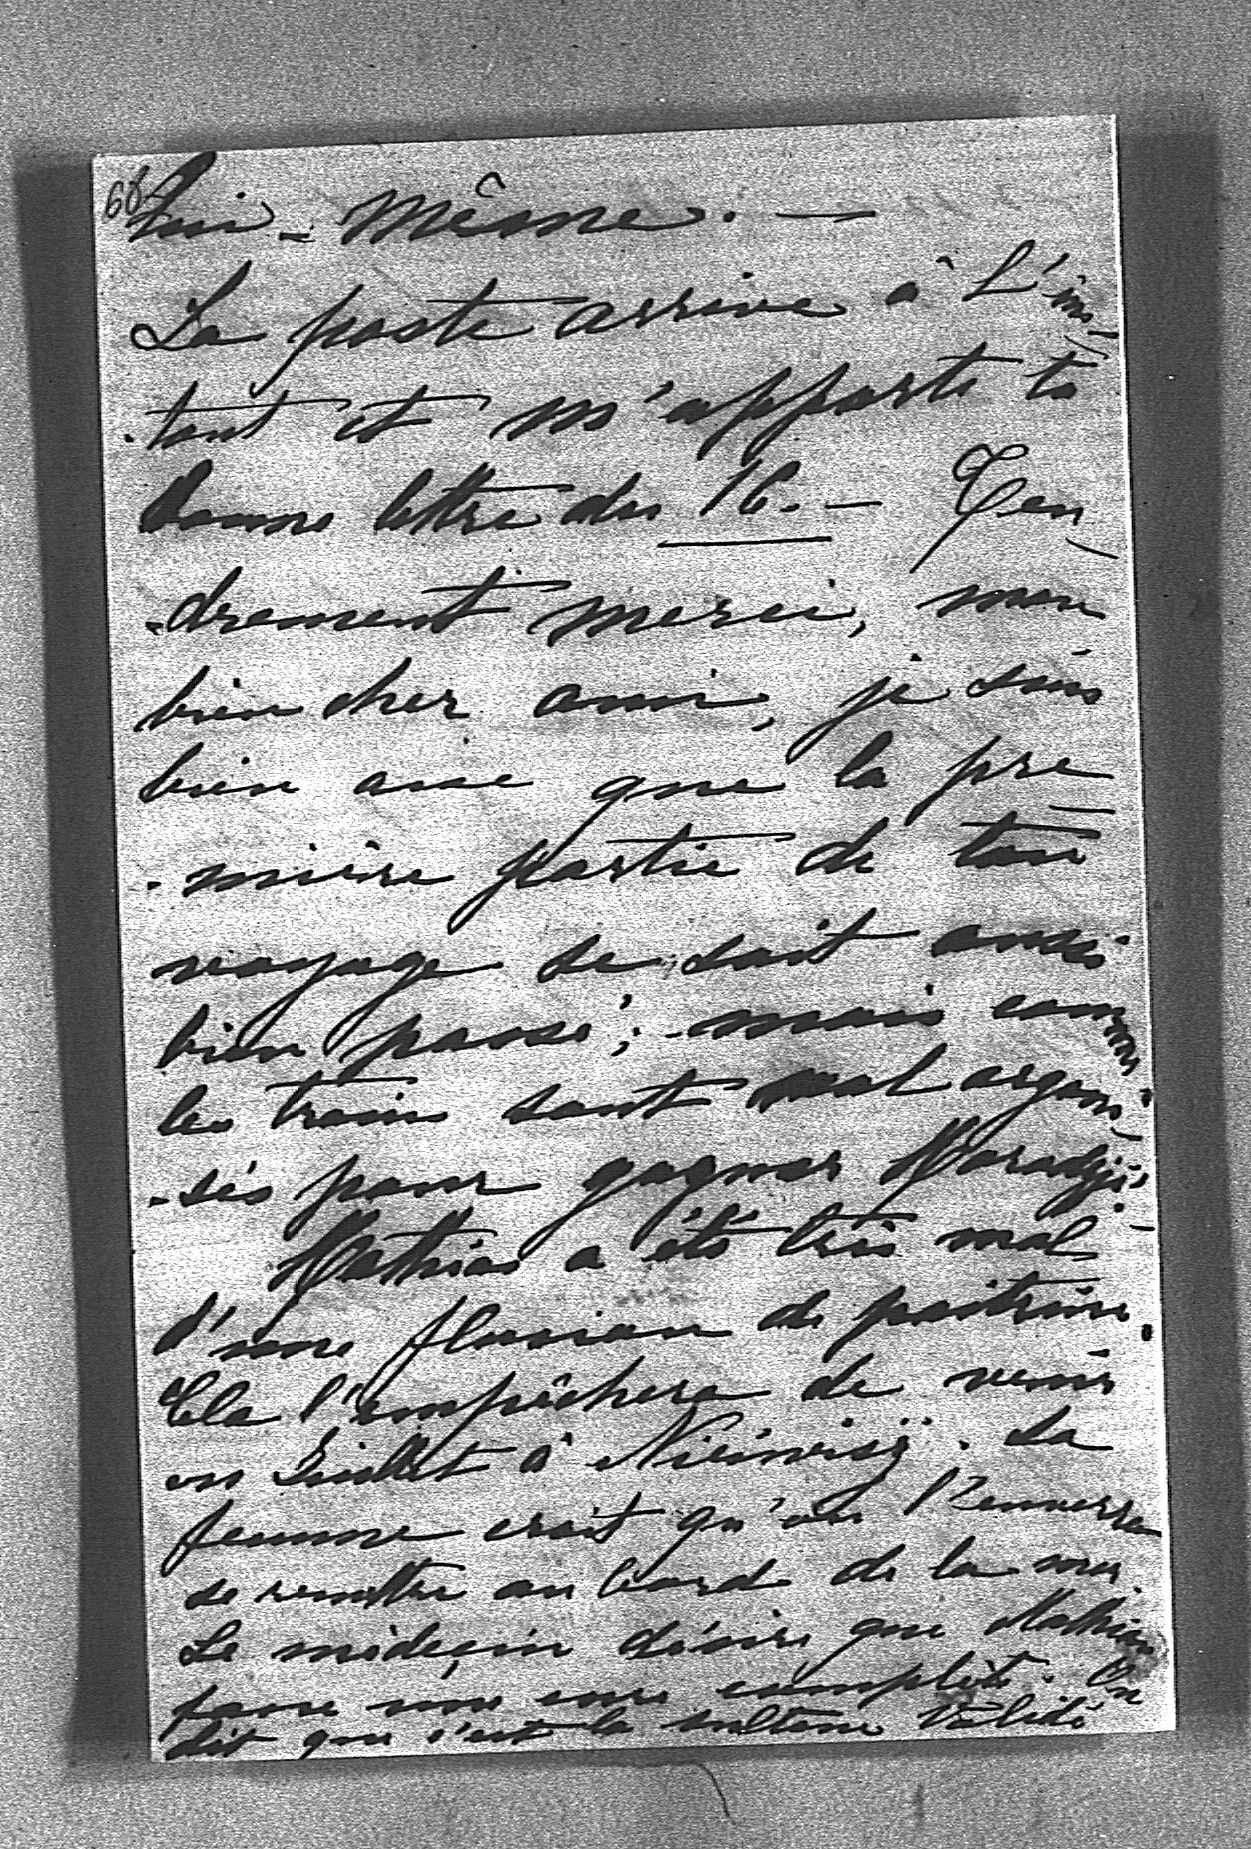 68
lui-même. —
La poste arrive à l'ins-
-tant et m'apporte ta
bonne lettre du 16. — Ten-
-drement merci, mon
bien cher ami, je suis
bien aise que la pre-
-mière partie de ton
voyage se soit aussi
bien passé; mais comme
les trains sont mal organi-
-sés pour gagner
Mathias a été très mal
d'une fluxion de poitrine.
Cela l'empêchera de venir
en Juillet à . Sa
femme croit qu'on l'enverra
se remettre au bord de la mer.
Le médecin désire que Mathias
fasse une cure complète. On
dit que c'est la sultane Validé